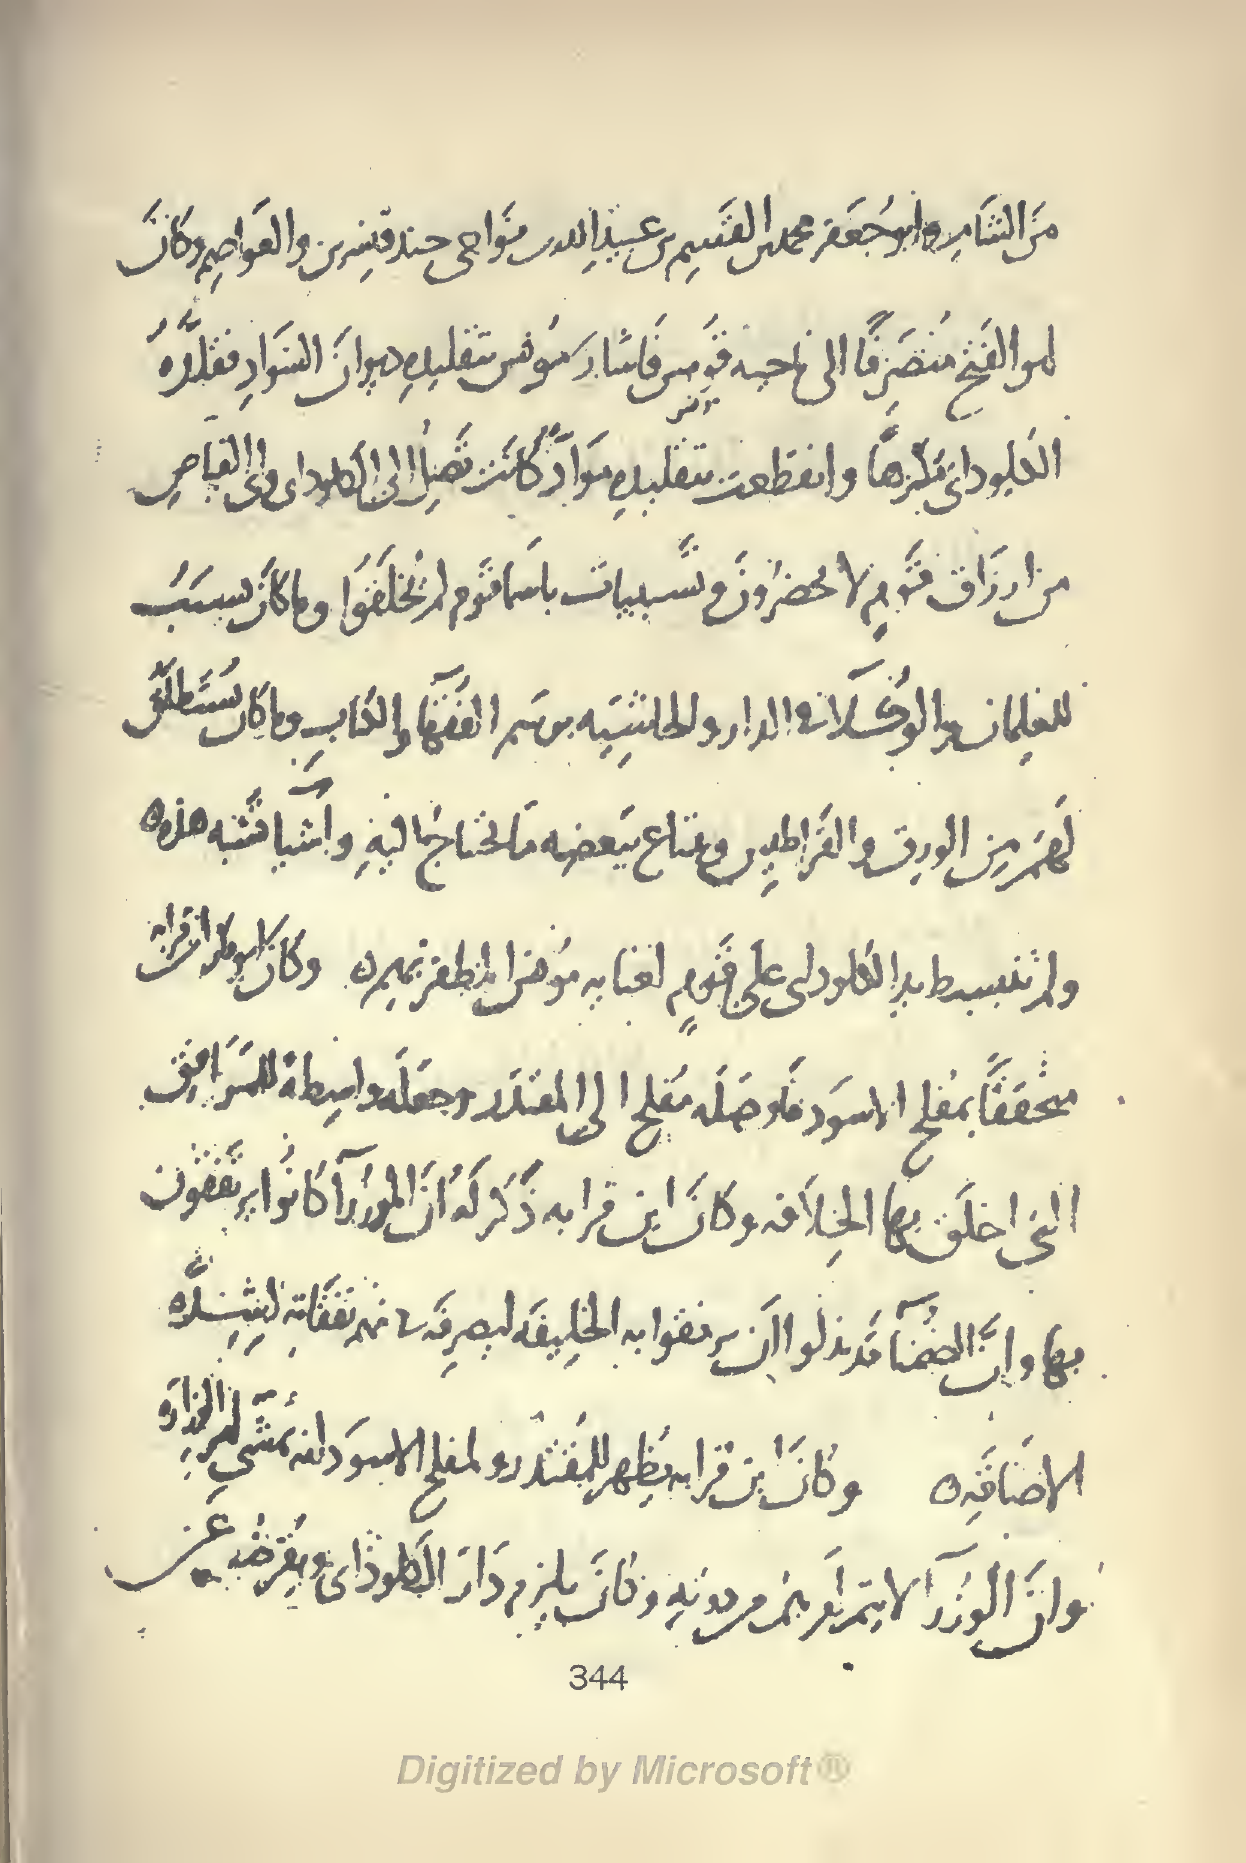 من الشام وابو جعفر محمد بن القسم بن عبيد الله بنواحى جند قنسرين والعواصم وكان
ابو الفتح منصرفا الى ناحيه فاشار مونس بتقليده ديوان السواد فقلده
الكلوداى مكرها وانقطعت بتقليده مواد كانت تصل الى الكلوداى
من ارزاق قوم لا يحضرون وتسبيبات باسما قوم لم يخلقوا وما كان يسبب
للغلمان والوكلا فى الدار والحاشيه برسم الفقها والكتاب وما كان يستطلق
لهم من الورق والقراطيس وبتاع بعضه ما يحتاج اليه واشيا تشبه هذه
ولم تنبسط يد الكلوداى على قوم لعنايه مونس المظفر بهم ه وكان ابو بكر ابن قرابه
متحققا بمفلح الاسود فاوصله مفلح الى المقتدر وجعله واسطه للمرافق
التى اخلق بها الخلافه وكان ابن قرابه ذكر له ان الوزرآ كانوا يرتفقون
بها وان الضمنآ قد بذلوا ان يرتفقوا به الخليفه ليصرفه فى مهم نفقاته لشده
الاضاقه ه وكان ابن قرابه يظهر للمقتدر ولمفلح الاسود انه يمشى امر الوزاره
وان الوزرآ لا يتم لهم من دونه وكان يلزم دار الكلوذاى ويقرضه عن
344
Digitized by Microsoft®